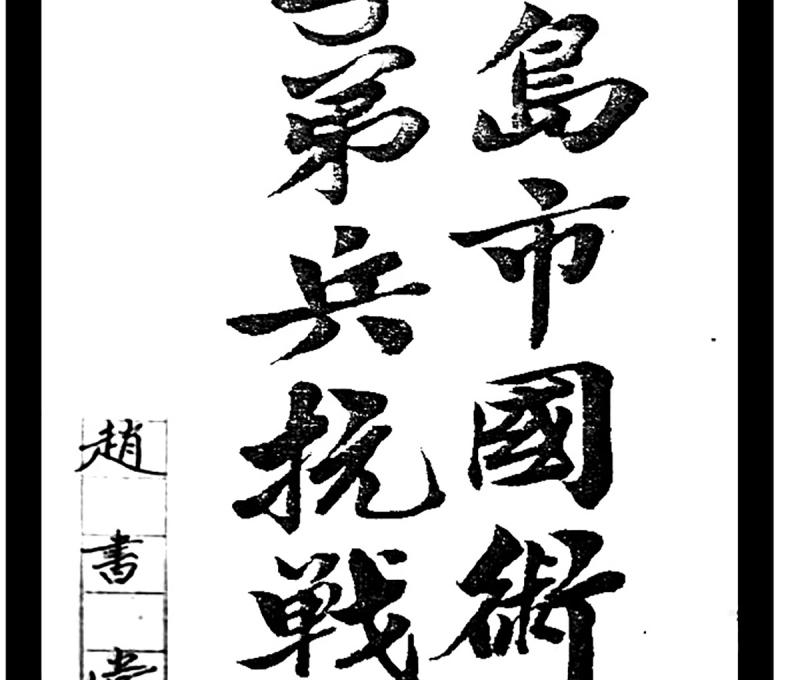 島市國術
弟兵抗戦
趙書